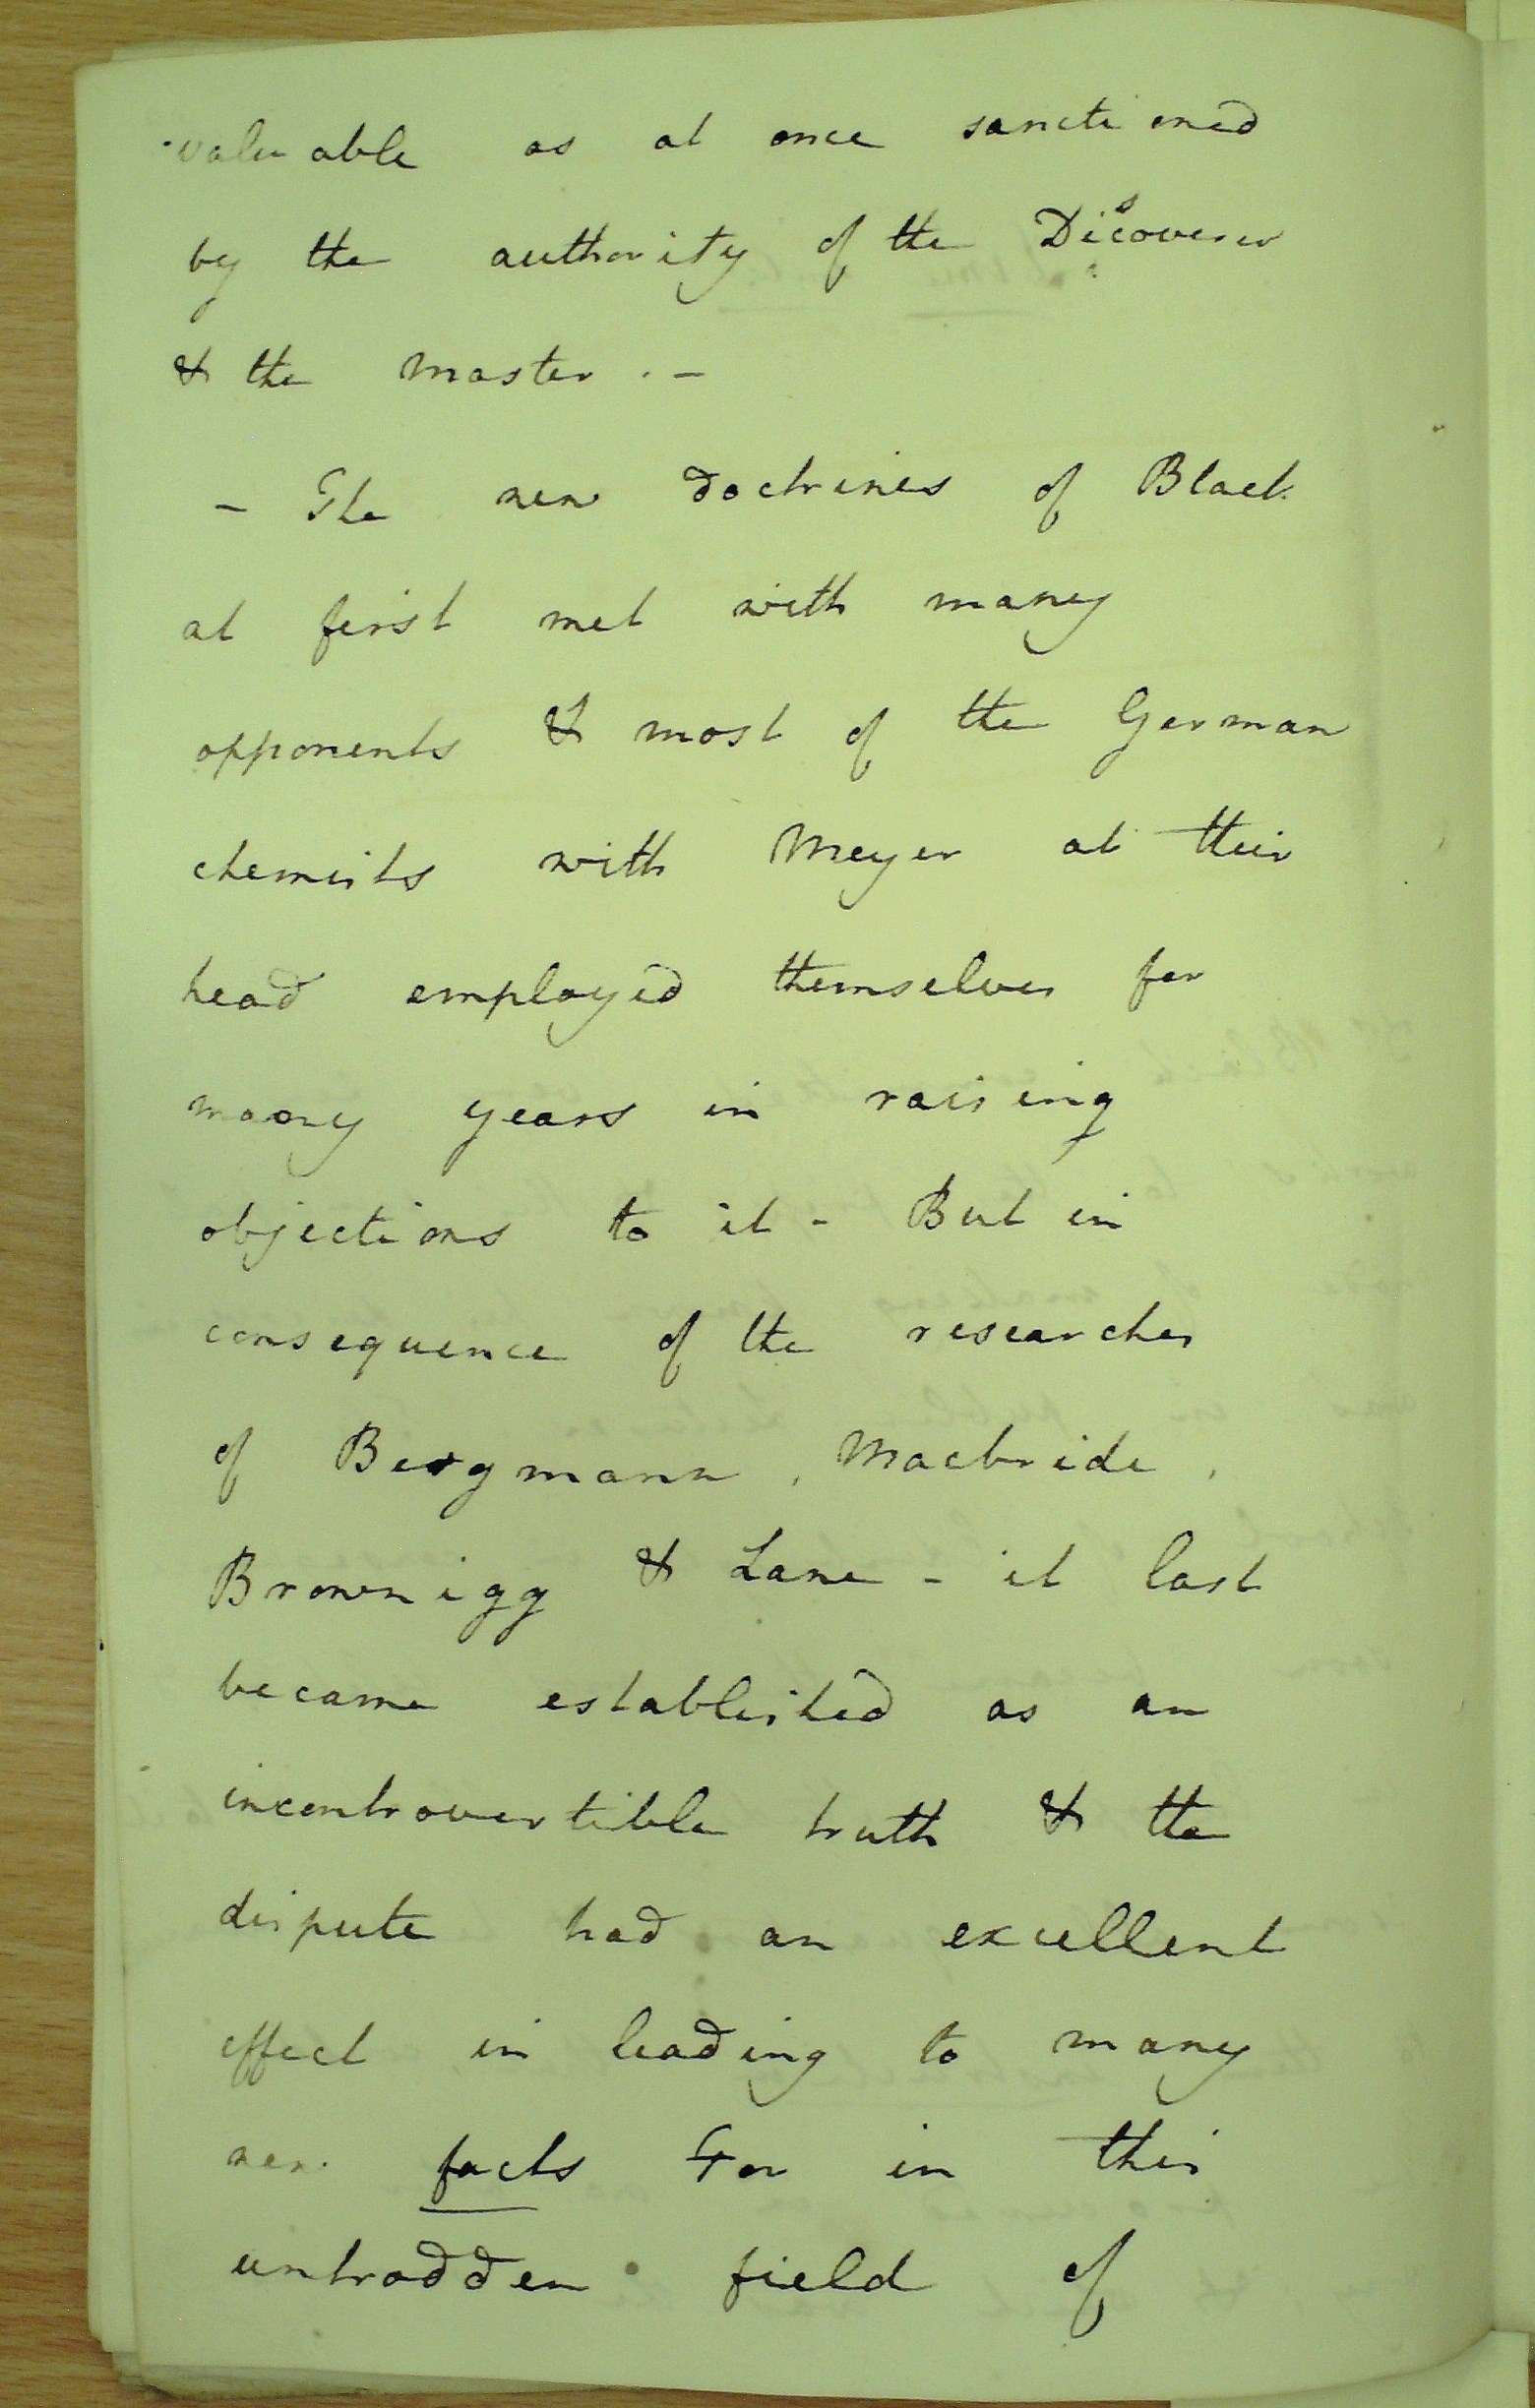 valuable as at once sanctioned
by the authority of the Discoverer
& the master. -
- The new doctrines of Black
at first met with many
opponents & most of the German
chemists with Meyer at their
head employed themselves for
many years in raising
objections to it - But in
consequence of the researches
of Bergmann, Macbride,
Brownigg & Lane - it last
became established as an
incontrovertible truth & the
dispute had an excellent
effect in leading to many
new facts For in this
untrodden field of